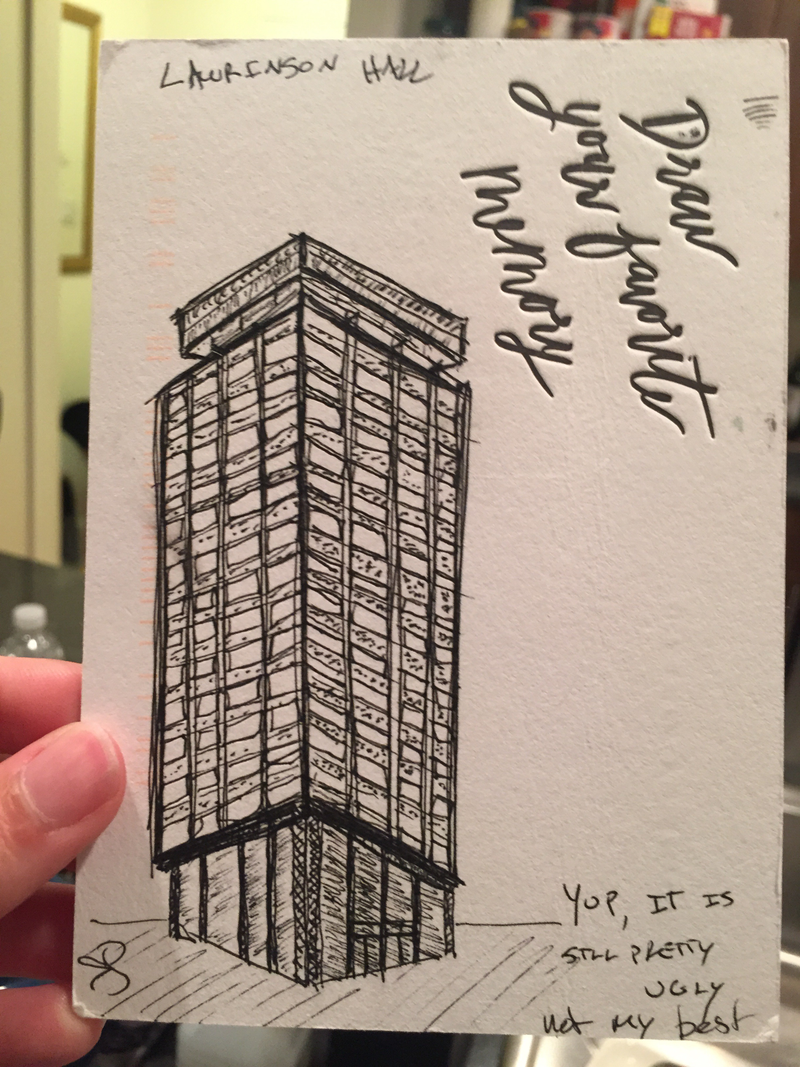 LAWRINSON HALL
Draw
your favorite
memory
YUP, IT IS
STILL PRETTY
UGLY
not my best